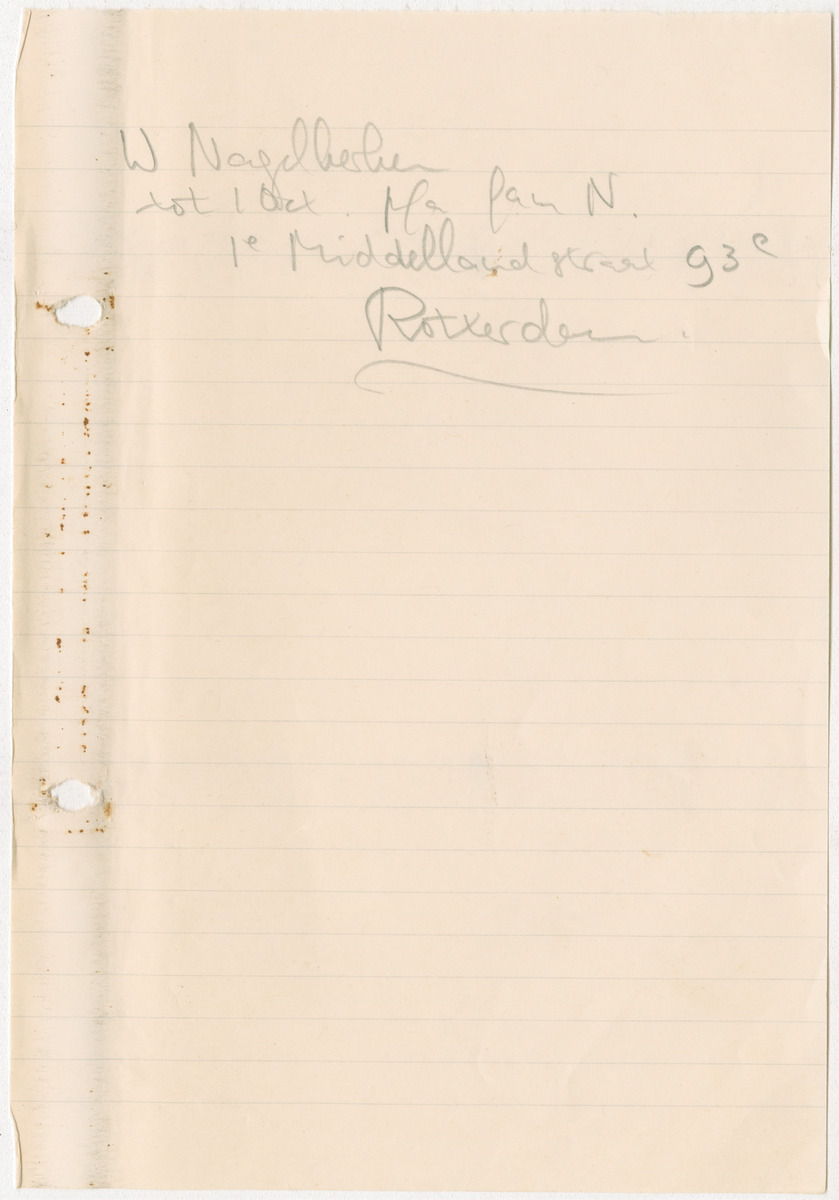 W Nagelkerken
tot 1 Oct. p/a fam N.
1e Middellandstraat 93c
Rotterdam.